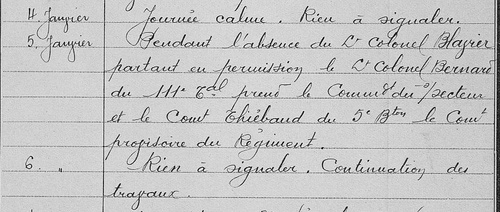 4. Janvier Journée calme. Rien à signaler.
5. Janvier Pendant l'absence du Lt Colonel Blazier
partant en permission le Lt Colonel Bernard
du 111e Tal prend le Commt du s/secteur
et le Comt Thiébaud du 5e Bton le Comt
provisoire du Régiment.
6. " Rien à signaler. Continuation des
travaux.